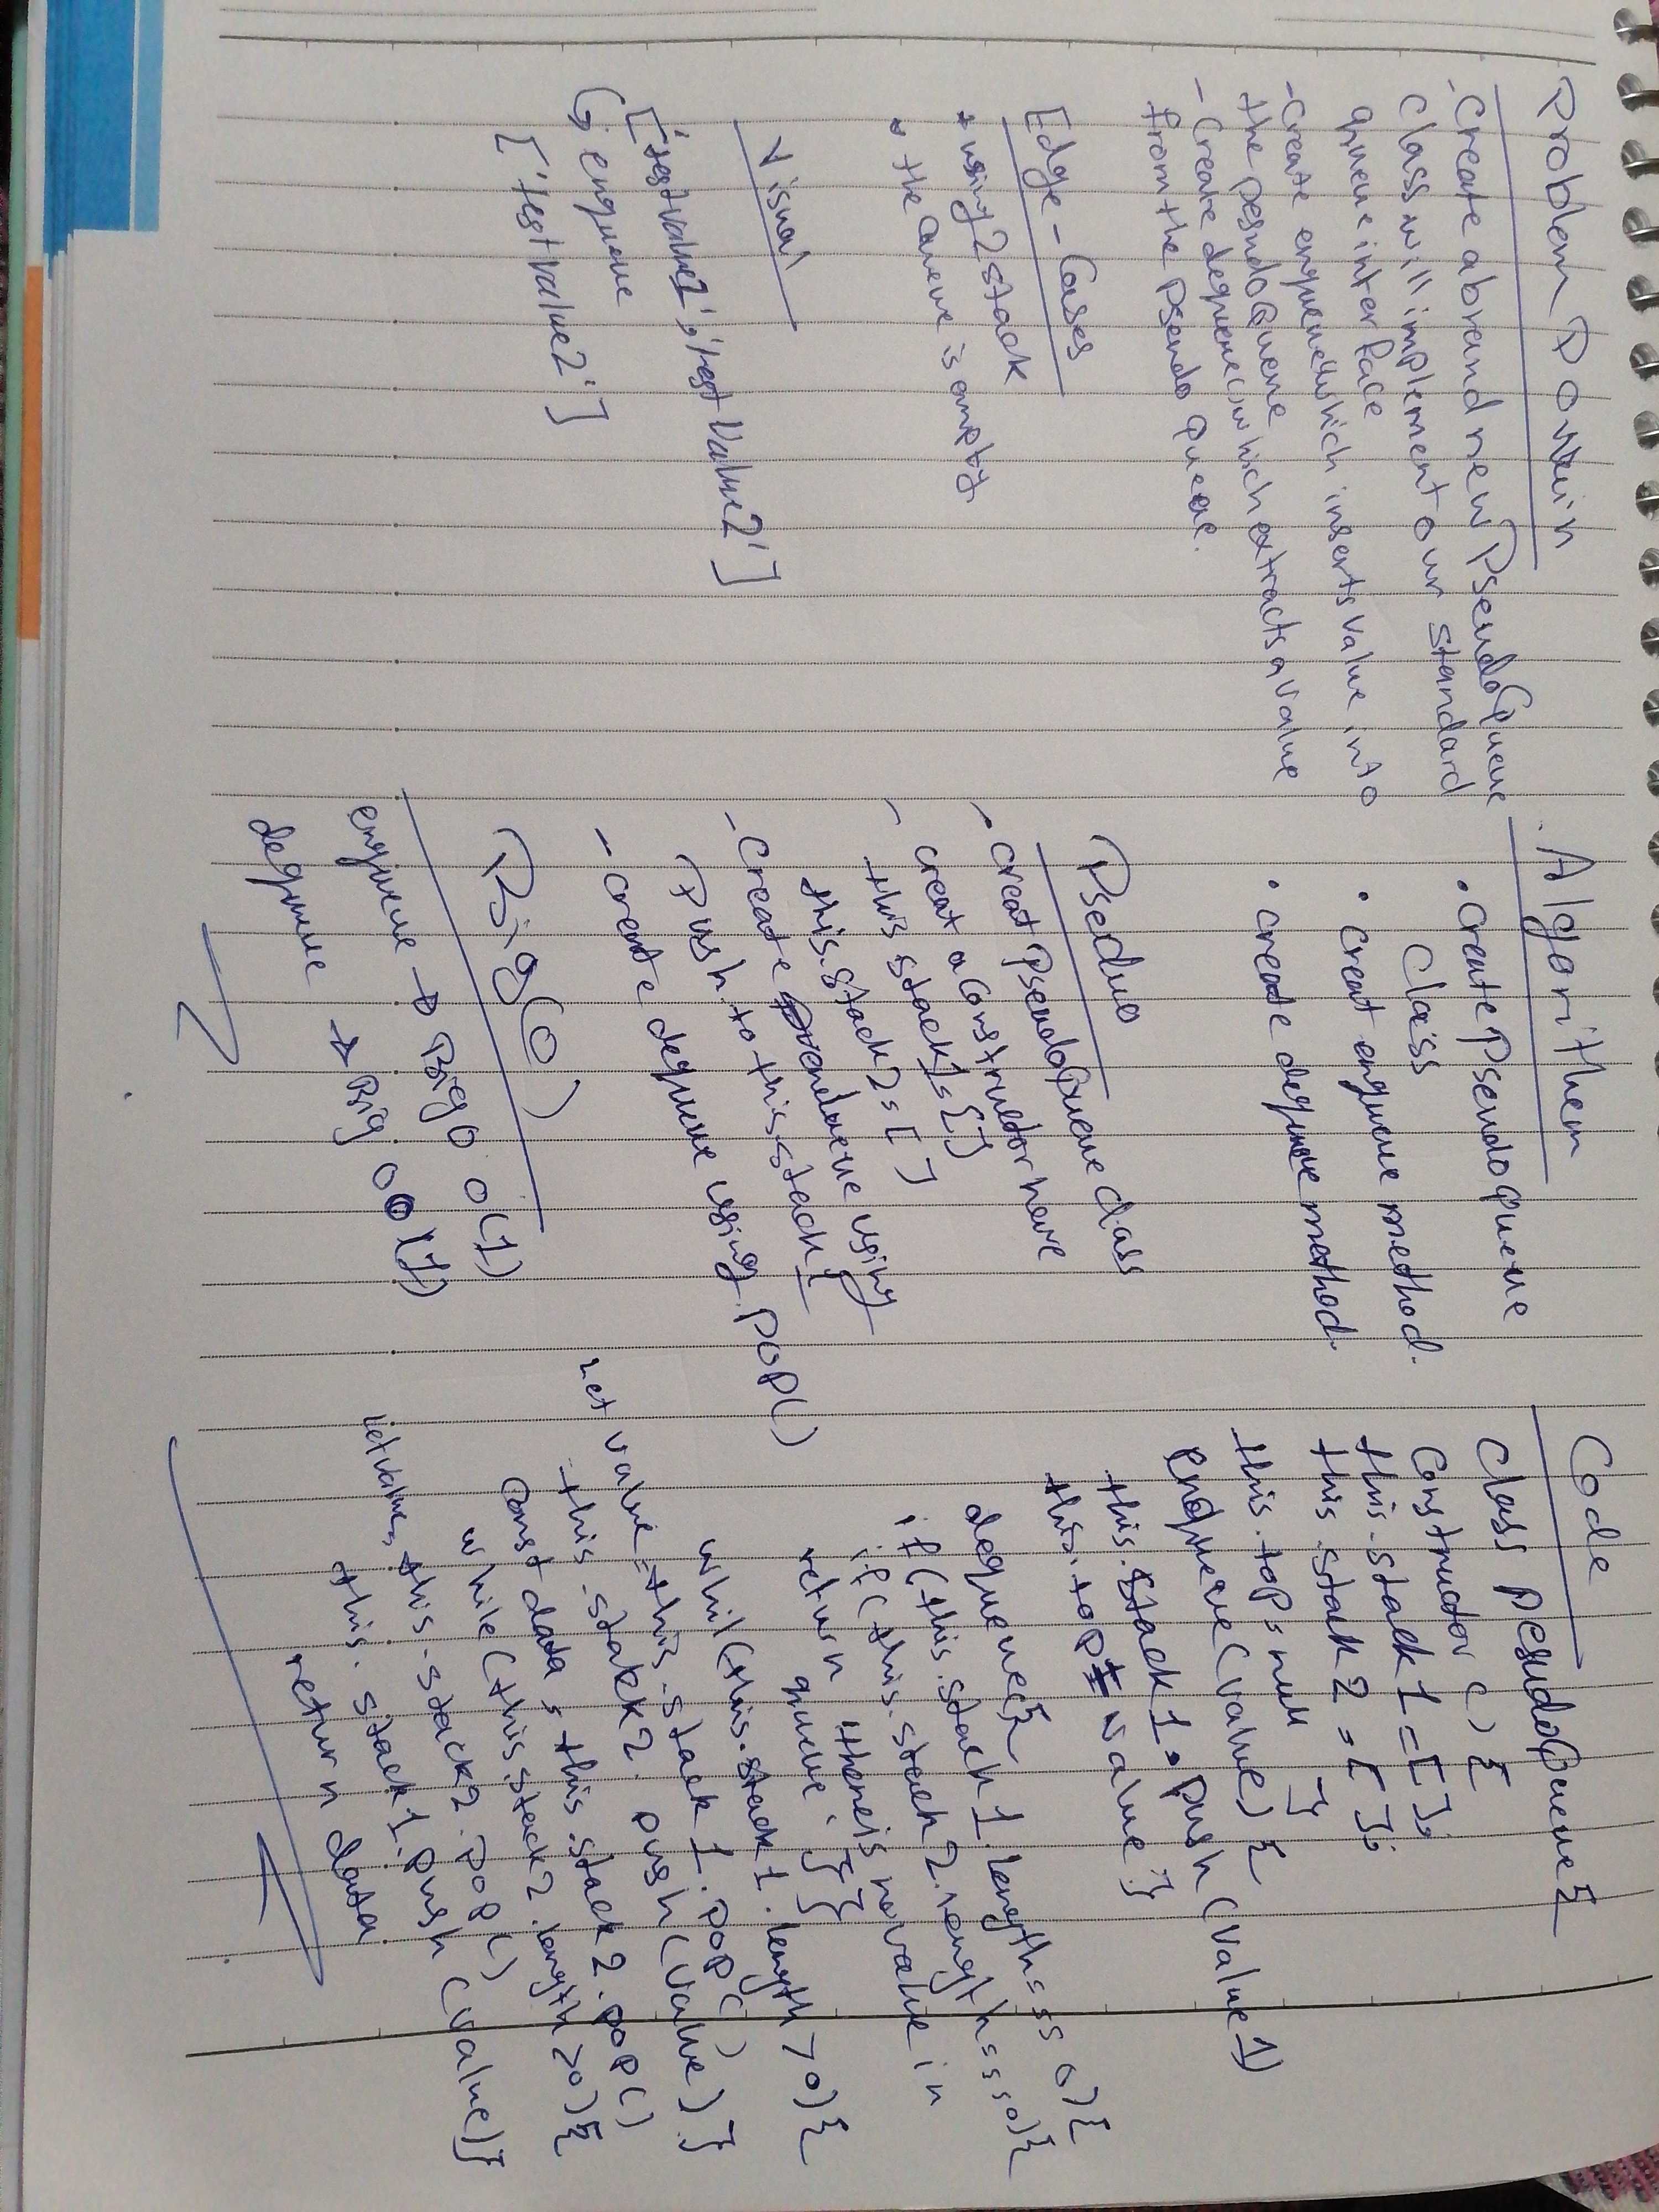 Problem Domain
- Create a brand new PseudoQueue
class will implement our standard
queue interface
- Create enqueue which inserts value into
the pesudoQueue
- Create dequeue which extracts a value
from the Pseudo queue.
Edge-Cases
* using 2 stack
* the Queue is empty
Visual
['testvalue1', 'test value2']
enqueue
['testvalue2']
Algorithem
• Create Pseudo queue
Class
• Creat enqueue method.
• create dequeue method.
Pseduo
- Creat PseudoQueue class
- creat a constructor have
this stack1=[]
this.stack2=[]
- Create using
(push to this.stack1
- create dequeue using .pop()
Big(O)
enqueue → Big O O(1)
dequeue → Big O O(1)
Code
Class PesudoQueue{
Constructor () {
this.stack1=[];
this.stack2=[];
this.top=null }
enqueue(value) {
this.stack1.push(value1)
this.top = value }
dequeue{
if(this.stack1.length===0){
if(this.stack2.length===0){
return there is no value in
queue; }}
whil(this.stack1.length>0){
let value=this.stack1.pop()
this.stack2.push(value)}
Const data = this.stack2.pop()
while(this.stack2.length>0){
let value=this.stack2.pop()
this.stack1.push(value)}
return data